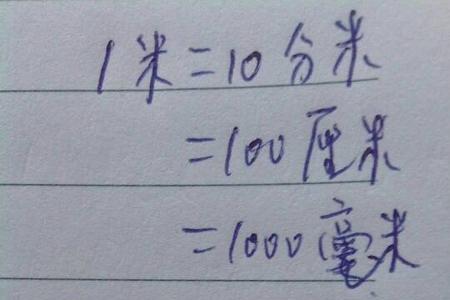 1米=10分米
=100厘米
=1000毫米